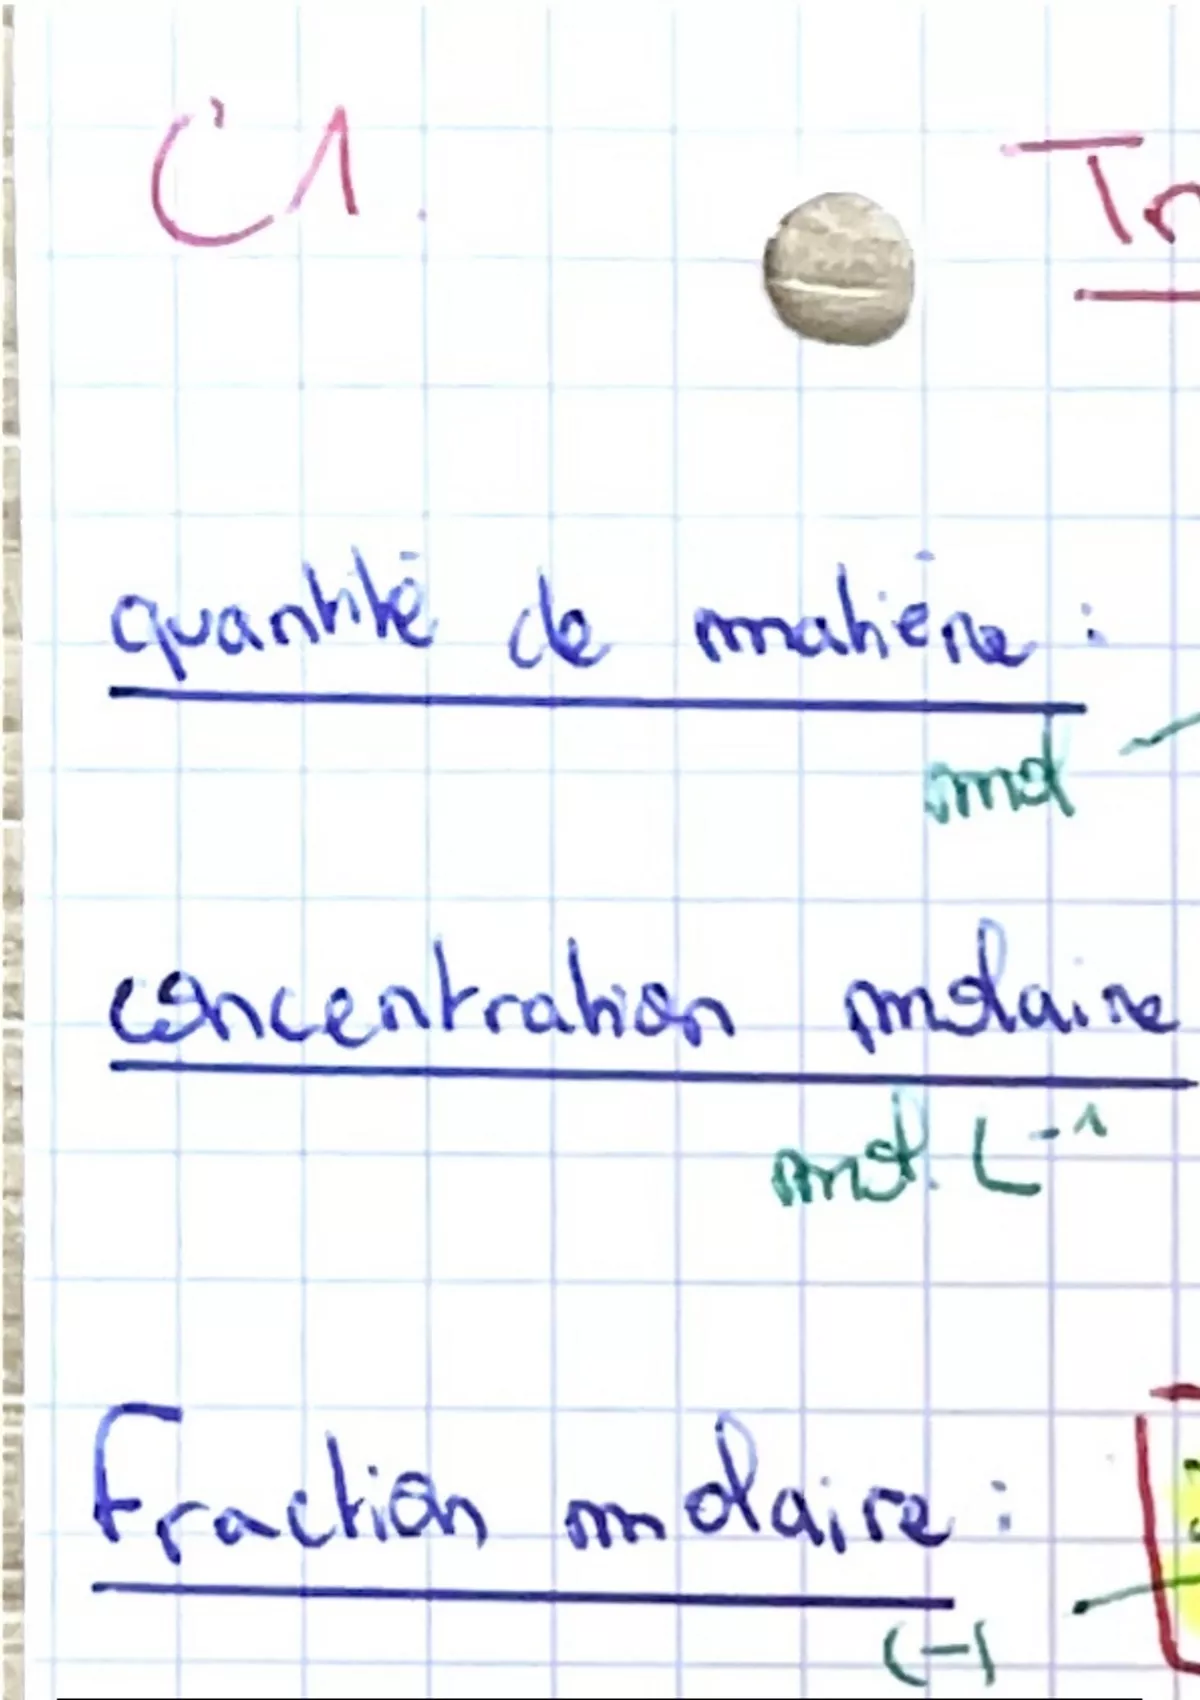 C1
quantité de matière :
mol
concentration molaire
mol. L⁻¹
Fraction molaire :
(-)